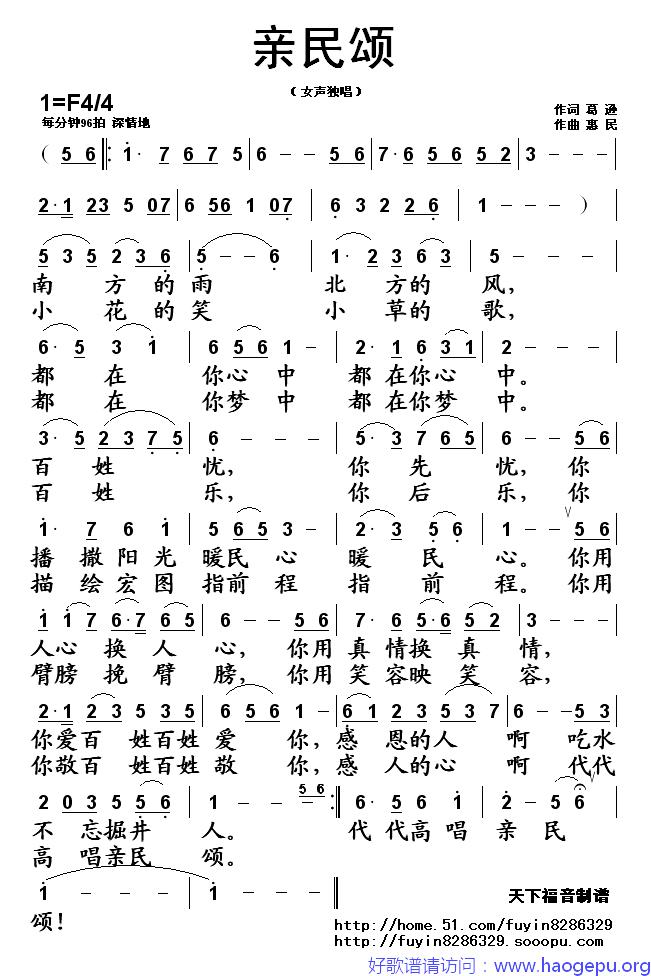 亲民颂
（女声独唱）
1=F4/4
每分钟96拍 深情地
作词 葛 逊
作曲 惠 民
( 5 6 ‖: 1· 7 6 7 5 | 6 - - 5 | 7· 6 5 6 5 2 | 3 - - - |
2· 1 23 5 07 | 6 56 1 07 | 6 3 2 2 6 | 1 - - - )
5 3 5 2 3 6 | 5 - - 6 | 1· 2 3 6 3 | 5 - - - |
南 方 的 雨 北 方 的 风，
小 花 的 笑 小 草 的 歌，
6· 5 3 1 | 6 5 6 1 - | 2· 1 6 3 1 | 2 - - - |
都 在 你心 中 都 在你心 中。
都 在 你梦 中 都 在你梦 中。
3· 5 2 3 7 5 | 6 - - - | 5· 3 7 6 5 | 6 - - 5 6 |
百 姓 忧， 你 先 忧， 你
百 姓 乐， 你 后 乐， 你
1· 7 6 1 | 5 6 5 3 - | 2· 3 5 6 | 1 - - 5 6 |
播 撒 阳 光 暖民 心 暖 民 心。 你用
描 绘 宏 图 指前 程 指 前 程。 你用
1 1 7 6·7 6 5 | 6 - - 5 6 | 7· 6 5·6 5 2 | 3 - - - |
人心 换 人 心， 你用 真 情换 真 情，
臂膀 挽 臂 膀， 你用 笑 容映 笑 容，
2· 1 2 3 5 3 5 | 6· 5 6 1 - | 6 1 2 3 5 3 7 | 6 - - 5 3 |
你爱百 姓百姓 爱 你， 感 恩的人 啊 吃水
你敬百 姓百姓 敬 你， 感 人的心 啊 代代
2 0 3 5 5 6 | 1 - - 5 6 :‖ 6· 5 6 1 | 2 - 5 6 |
不 忘掘井 人。 代 代高 唱 亲 民
高 唱亲民 颂。
1 - - - | 1 - - - ‖
颂！
天下福音制谱
http://home.51.com/fuyin8286329
http://fuyin8286329.sooopu.com
好歌谱请访问：www.haogepu.org